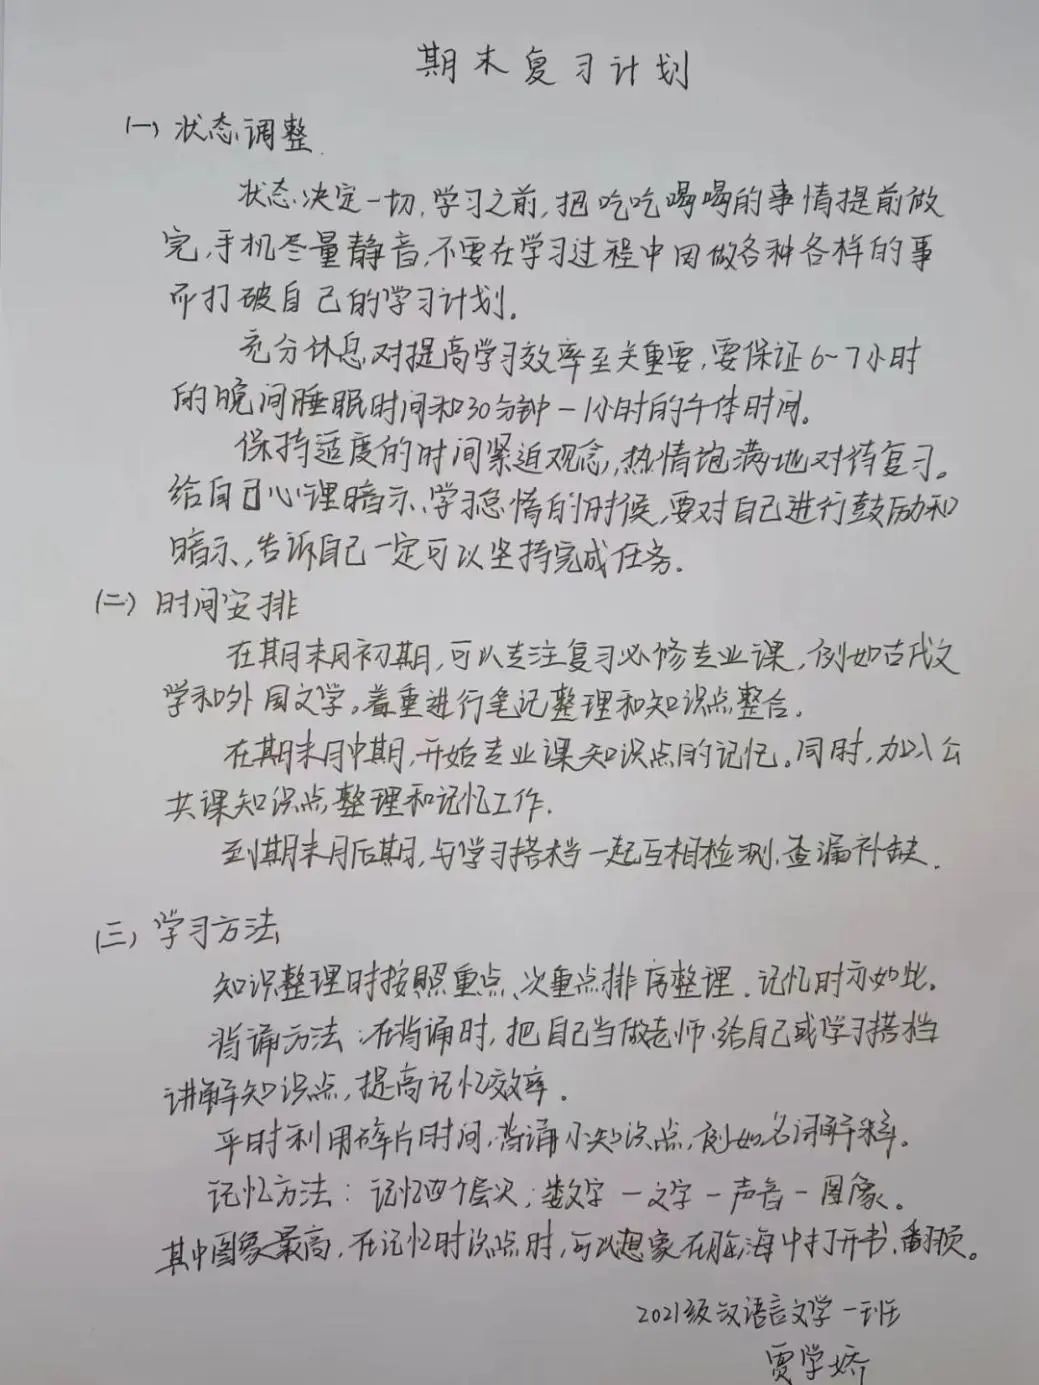 期末复习计划
(一) 状态调整
状态决定一切,学习之前,把吃吃喝喝的事情提前做
完,手机尽量静音,不要在学习过程中因做各种各样的事
而打破自己的学习计划。
充分休息对提高学习效率至关重要,要保证6~7小时
的晚间睡眠时间和30分钟-1小时的午休时间。
保持适度的时间紧迫观念,热情饱满地对待复习。
给自己心理暗示、学习怠惰的时候,要对自己进行鼓励和
暗示,告诉自己一定可以坚持完成任务.
(二) 时间安排
在期末月初期,可以专注复习必修专业课,例如古代文
学和外国文学。着重进行笔记整理和知识点整合.
在期末月中期,开始专业课知识点的记忆。同时,加以公
共课知识点整理和记忆工作.
到期末月后期,与学习搭档一起互相检测,查漏补缺.
(三) 学习方法
知识整理时按照重点、次重点排序整理.记忆时亦如此.
背诵方法:在背诵时,把自己当做老师,给自己或学习搭档
讲解知识点,提高记忆效率.
平时利用碎片时间,背诵小知识点,例如名词解释.
记忆方法:记忆四个层次;数字-文字-声音-图像。
其中图象最高,在记忆时识点时,可以想象在脑海中打开书,翻页。
2021级汉语言文学一班
贾学娇